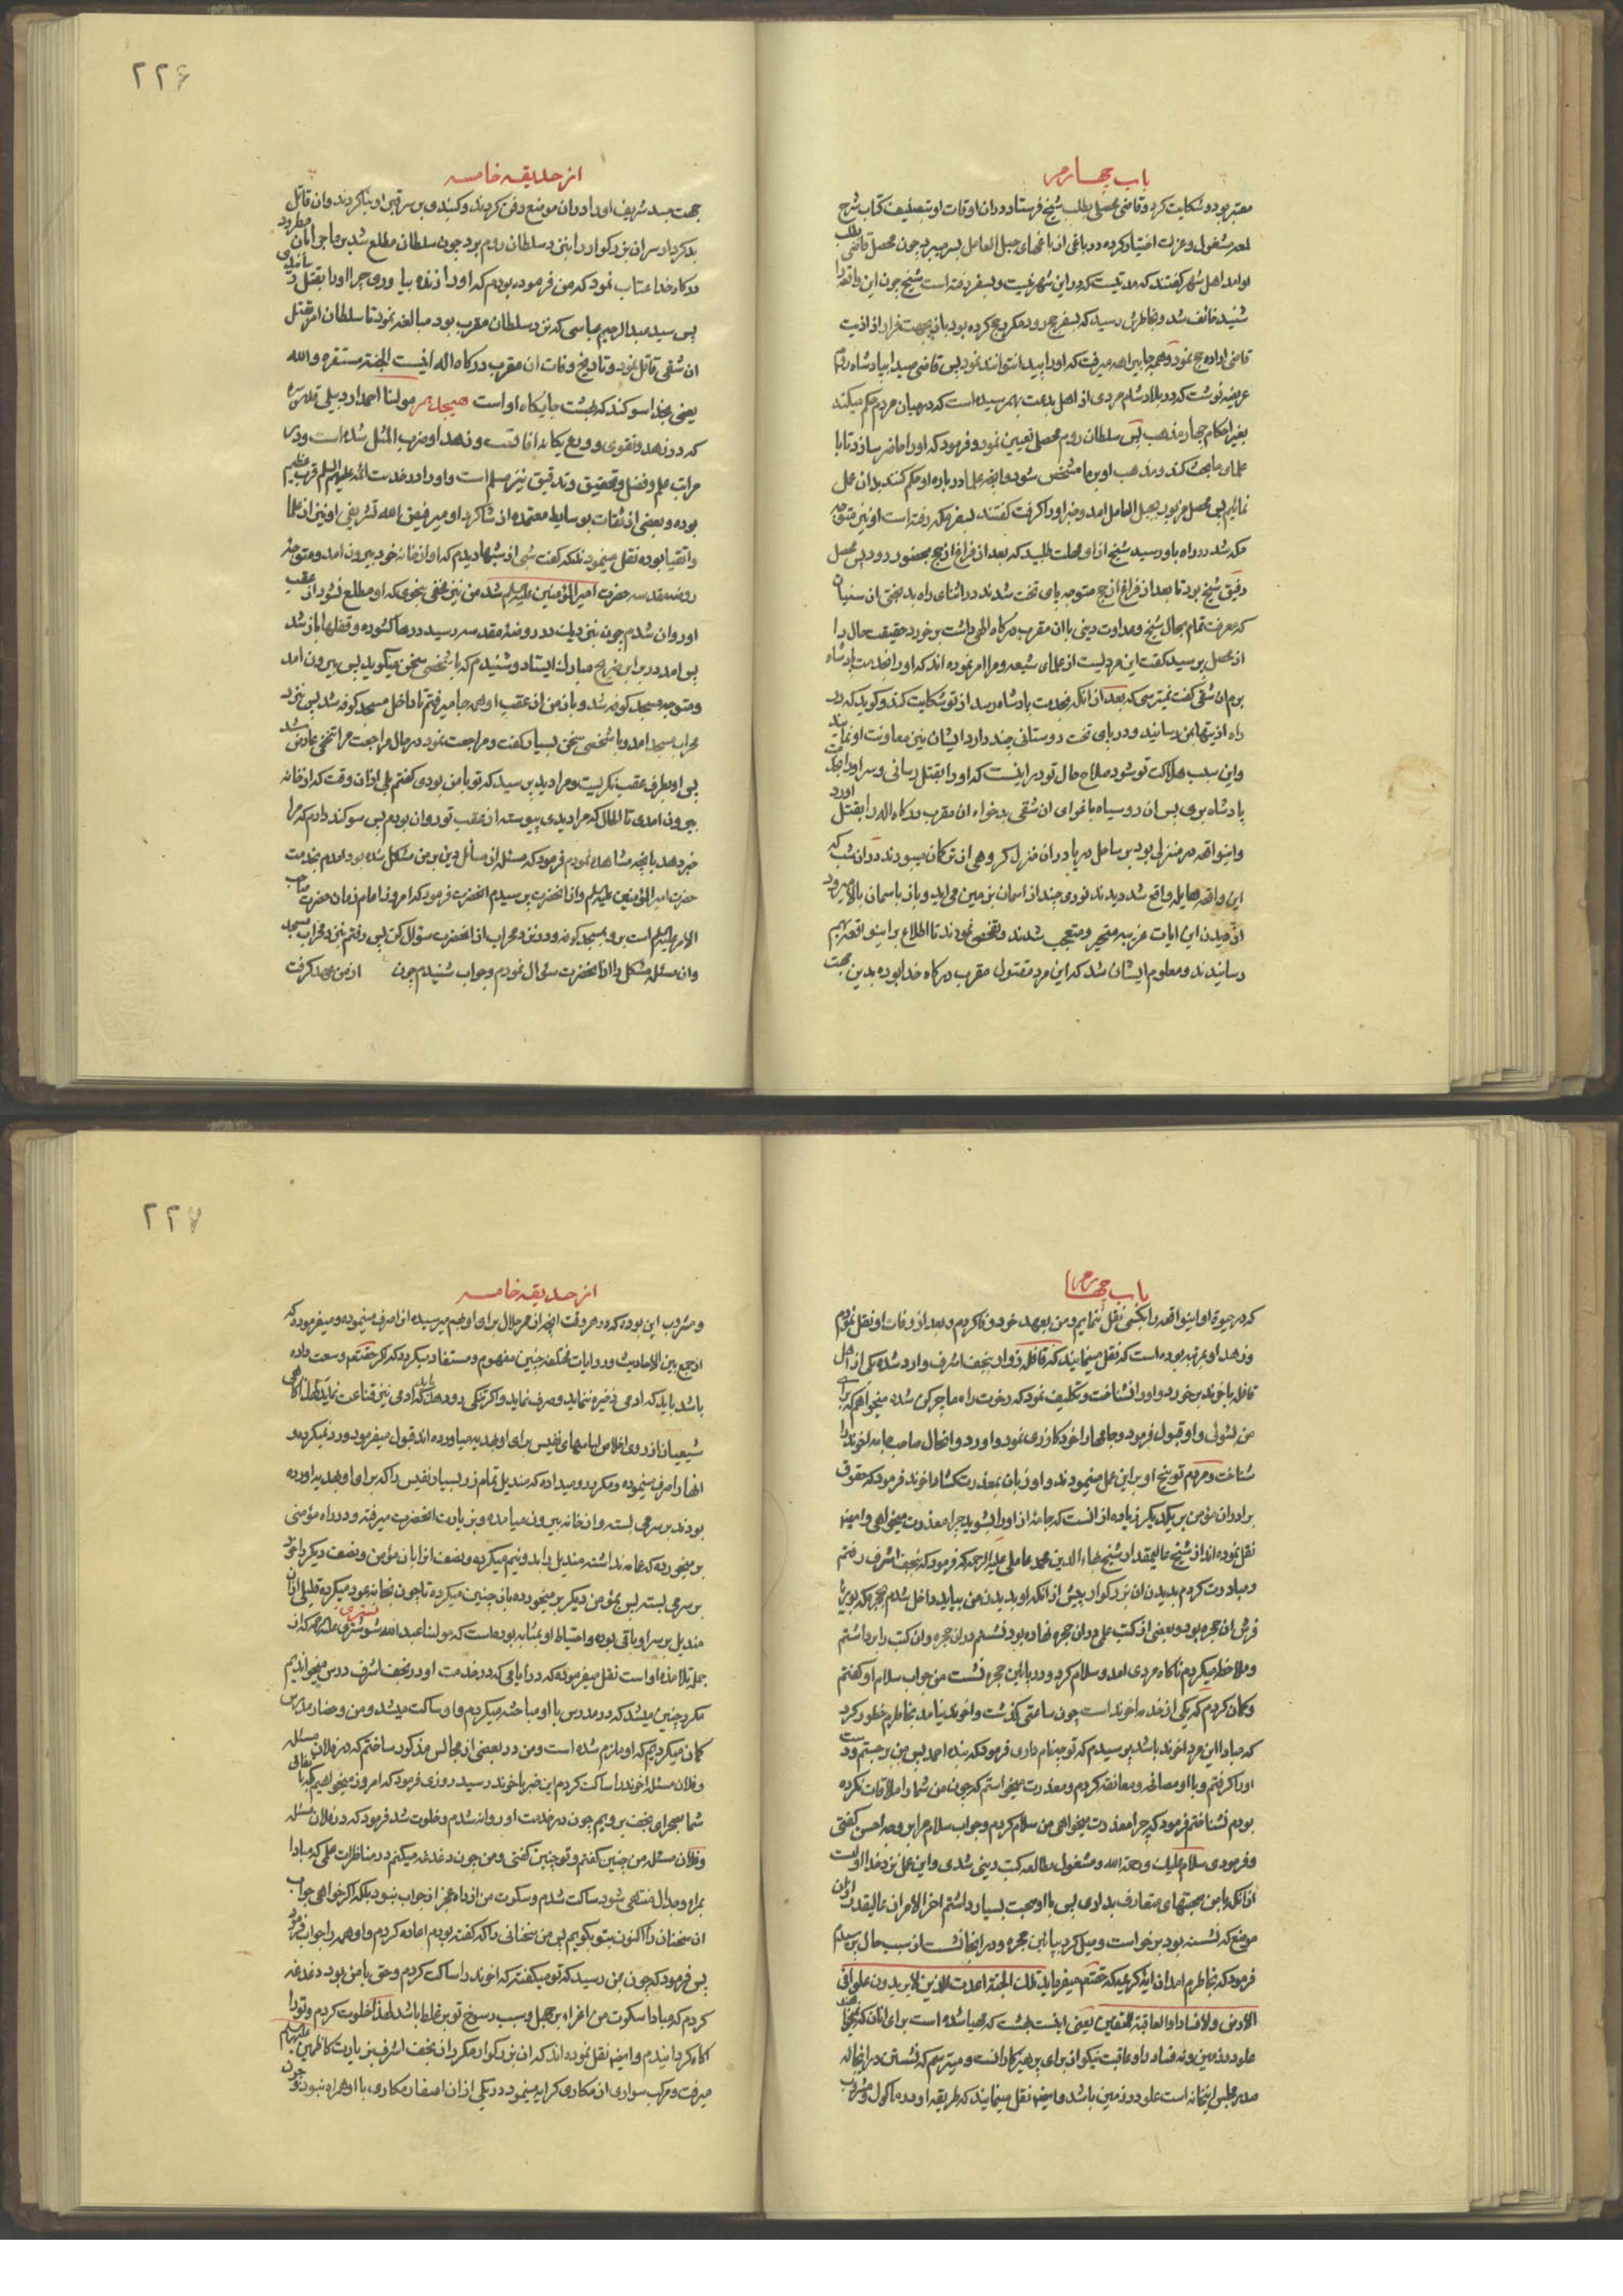 باب چهارم
معتبر بوده شکایت کرد و قاضی محصلی بطلب شیخ فرستاد و دران اوقات او بتصنیف کتاب شرح
لمعه مشغول و عزلت اختیار کرده در باغی از باغهای جبل العامل بسر میبرد چون محصل قاضی بطلب
او امد اهل شهر گفتند که مدتیست که در این شهر نیست و بسفر رفته است شیخ چون این واقعه را
شنید خائف شد و بخاطرش رسید که بسفر حج رود و مکرر حج کرده بود باز بجهت فرار از اذیت
قاضی اراده حج نمود و همه جا میرفت که او را پیدا نتوانند نمود پس قاضی صیدا بپادشاه روم
عریضه نوشت که در بلاد شام مردی از اهل بدعت بهم رسیده است که در میان مردم حکم میکند
بغیر احکام چهار مذهب پس سلطان روم محصلی تعیین نمود و فرمود که او را حاضر سازد تا با
علمای ما بحث کند و مذهب او بر ما مشخص شود و انچه علما در باره او حکم کنند بدان عمل
نمائیم پس محصل مزبور بجبل العامل امد و خبر او را گرفت گفتند بسفر مکه رفته است او نیز متوجه
مکه شد در راه باو رسید شیخ از او مهلت طلبید که بعد از فراغ از حج بحضور رود پس محصل
رفیق شیخ بود تا بعد از فراغ از حج متوجه پای تخت شدند در اثنای راه بدبختی از سنیان
که معرفت تمام بحال شیخ و عداوت دینی با ان مقرب درگاه الهی داشت برخورد حقیقت حال را
از محصل پرسید گفت این مردیست از علمای شیعه و مرا امر نموده اند که او را بخدمت پادشاه
برم ان شقی گفت نمیترسی که بعد از انکه بخدمت پادشاه رسد از تو شکایت کند و گوید که در
راه اذیتها بمن رسانید و در پای تخت دوستانی چند دارد ایشان نیز معاونت او نمایند
و این سبب هلاکت تو شود صلاح حال تو در اینست که او را بقتل رسانی و سر او را بجهت
پادشاه بری پس ان روسیاه باغوای ان شقی بدخواه ان مقرب درگاه اله را بقتل اورد
و اینواقعه در منزلی بود بر ساحل دریا دران منزل گروهی از ترکمان میبودند دران شب که
این واقعه هایله واقع شد دیدند نوری چند از اسمان بزمین می اید و باز باسمان بالا میرود
از دیدن این ایات غریبه متحیر و متعجب شدند و تفحص نمودند تا اطلاع بر اینواقعه بهم
رسانیدند و معلوم ایشان شد که این مرد مقتول مقرب درگاه خدا بوده بدین جهت
۲۲۶
از حدیقه خامسه
جهت جسد شریف او را دران موضع دفن کردند و گنبدی بر سر قبر او بنا کردند و ان قاتل
بدکردار سر ان بزرگوار را بنزد سلطان روم برد چون سلطان مطلع شد بر ماجرا بان مطرود
درگاه خدا عتاب نمود که من فرموده بودم که او را زنده بیاوری چرا او را بقتل رسانیدی
پس سید عبد الرحیم عباسی که نزد سلطان مقرب بود مبالغه نمود تا سلطان امر بقتل
ان شقی قاتل نمود و تاریخ وفات ان مقرب درگاه اله اینست الجنة مستقره والله
یعنی بخدا سوگند که بهشت جایگاه او است هیجدهم مولنا احمد اردبیلی قدس سره
که در زهد و تقوی و ورع یگانه افاقست و زهد او ضرب المثل شده است و در
مراتب علم و فضل و تحقیق و تدقیق نیز مسلم است و او را در خدمت ائمه علیهم السلم قرب عظیم
بوده و بعضی از ثقات بوسایط معتمده از شاگرد او میر فیض الله تفریشی او نیز از علما
و اتقیا بوده نقل مینمودند که گفت شبی از شبها دیدم که او از خانه خود بیرون امد و متوجه
روضه مقدسه حضرت امیرالمؤمنین علیه السلم شد من نیز مخفی بنحوی که او مطلع نشود از عقب
او روان شدم چون بنزدیک در روضه مقدسه رسید درها گشوده و قفلها باز شد
پس امد در برابر ضریح مبارک ایستاد و شنیدم که با شخصی سخن میگوید پس بیرون امد
و متوجه مسجد کوفه شد و باز من از عقب او همه جا میرفتم تا داخل مسجد کوفه شد پس بنزد
محراب مسجد امد و با شخصی سخن بسیار گفت و مراجعت نمود در حال مراجعت مرا تنحنحی عارض شد
پس او بطرف عقب نگریست و مرا دید پرسید که تو با من بودی گفتم بلی از ان وقت که از خانه
بیرون امدی تا الحال که مرا دیدی پیوسته از عقب تو روان بودم پس سوگند دادم که مرا
خبر دهد بانچه مشاهده نمودم فرمود که مسئله از مسائل دین بر من مشکل شده بود امدم بخدمت
حضرت امیر المؤمنین علیه السلم و از انحضرت پرسیدم انحضرت فرمود که امروز امام زمان حضرت صاحب
الامر علیه السلم است برو بمسجد کوفه و در نزد محراب از انحضرت سؤال کن پس رفتم بنزد محراب مسجد
و ان مسئله مشکل را از انحضرت سئوال نمودم و جواب شنیدم چون از من عهد گرفت
باب چهارم
که در حیوة او اینواقعه را بکسی نقل ننمایم و من بعهد خود وفا کردم و بعد از وفات او نقل نمودم
و زهد او بمرتبه بوده است که نقل مینمایند که قافله زوار بنجف اشرف وارد شده یکی از اهل
قافله باخوند برخورد و او را نشناخت و تکلیف نمود که رخوت راه ما چرکین شده میخواهم که برای
من بشوئی و او قبول فرمود و جامها را خود گازری نمود و اورد و انحال صاحب جامه اخوند را
شناخت و مردم توبیخ او بر این عمل مینمودند و او زبان بمعذرت گشاد اخوند فرمود که حقوق
برادران مؤمن بر یکدیگر زیاده از انست که جامه از او را بشوید چرا معذرت میخواهی و ایضا
نقل نموده اند از شیخ عالیمقدار شیخ بهاء الدین محمد عاملی علیه الرحمه که فرمود که بنجف اشرف رفتم
و مبادرت کردم بدیدن ان بزرگوار پیش از انکه او بدیدن من بیاید داخل شدم بحجره که بوریا
فرش ان حجره بود و بعضی از کتب علمی دران حجره نهاده بود نشستم دران حجره و ان کتب را برداشتم
و ملاحظه میکردم ناگاه مردی امد و سلام کرد و در پائین حجره نشست من جواب سلام او گفتم
و گمان کردم که یکی از خدمه اخوند است چون ساعتی گذشت و اخوند نیامد بخاطرم خطور کرد
که مبادا این مرد اخوند باشد پرسیدم که تو چه نام داری فرمود که بنده احمد پس من برجستم و دست
او را گرفتم و با او مصافحه و معانقه کردم و معذرت میخواستم که چون من شما را ملاقات نکرده
بودم نشناختم فرمود که چرا معذرت میخواهی من سلام کردم و جواب سلام مرا بر وجه احسن گفتی
و فرمودی سلام علیک و رحمة الله و مشغول مطالعه کتب دینی شدی و این عمل نزد خدا اولیست
از انکه با من صحبتهای متعارف بداری پس با او صحبت بسیار داشتم اخر الامر ان عالیقدر از ان
موضع که نشسته بود برخواست و میل کرد بپائین حجره و در انجا نشست از سبب حال پرسیدم
فرمود که بخاطرم امد ان ایه کریمه که حقتعم میفرماید تلک الجنة اعدت للذین لا یریدون علوا فی
الارض ولا فسادا والعاقبة للمتقین یعنی اینست بهشت که مهیا شده است برای انان که نمیخواهند
علو در زمین و نه فساد را و عاقبت نیکو از برای پرهیزکارانست و میترسم که نشستن در انجا که
صدر مجلس اینخانه است علو در زمین باشد و ایضا نقل مینمایند که طریقه او در ماکول و مشروب
۲۲۷
از حدیقه خامسه
و مشروب این بوده که در هر وقت انچه از ممر حلال برای او بهم میرسیده انرا صرف مینموده و میفرموده که
از جمع بین الاحادیث و روایات مختلفه چنین مفهوم و مستفاد میگردد که اگر حقتعم وسعت داده
باشد باید که ادمی ذخیره ننماید و صرف نماید و اگر تنگی رو دهد باید که ادمی نیز قناعت نماید لهذا گاهی
شیعیان از روی اخلاص لباسهای نفیس برای او بهدیه میاورده اند قبول میفرمود و رد نمیکرد و
انها را صرف مینموده و مکرر رو میداده که مندیل تمام زر بسیار نفیس را که برای او بهدیه اورده
بودند بر سر می بسته و از خانه بیرون میامده و بزیارت انحضرت میرفته و در راه مؤمنی
بر میخورده که عمامه نداشته مندیل را بدو نیم میکرده و نصف انرا بان مؤمن و نصف دیگر را خود
بر سر می بسته پس بمؤمن دیگر بر میخورده باز چنین میکرده تا چون بخانه عود میکرده قلیلی از ان
مندیل بر سر او باقی بوده و احتیاط او بمثابه بوده است که مولنا عبد الله شوشتری تستری علیه الرحمه که از
جمله تلامذه او است نقل میفرموده که در ایامی که در خدمت او در نجف اشرف درس میخواندیم
مکرر چنین میشد که در مدرس با او مباحثه میکردم و او ساکت میشد و من و حضار مدرس
گمان میکردیم که او ملزم شده است و من در بعضی از مجالس مذکور ساختم که در فلان مسئله
و فلان مسئله اخوند را ساکت کردم این خبر باخوند رسید روزی فرمود که امروز میخواهیم که باتفاق
شما بصحرای نجف برویم چون در خدمت او روانه شدم و خلوت شد فرمود که در فلان مسئله
و فلان مسئله من چنین گفتم و تو چنین گفتی و من چون دغدغه میکنم در مناظرات علمی که مبادا
بمراء و جدال منتهی شود ساکت شدم و سکوت من از راه عجز از جواب نبود بلکه اگر خواهی جواب
ان سخنان را اکنون بتو بگویم پس من سخنانی را که گفته بودم اعاده کردم و او همه را جواب فرمود
پس فرمود که چون بمن رسید که تو میگفته که اخوند را ساکت کردم و حق با من بود دغدغه
کردم که مبادا سکوت من اغراء بر جهل و سبب رسوخ تو بر غلط باشد لهذا خلوت کردم و تو را
اگاه گردانیدم و ایضا نقل نموده اند که ان بزرگوار مکرر از نجف اشرف بزیارت کاظمین علیهما السلم
میرفت و مرکب سواری از مکاری کرایه مینمود در یکی از ان اسفار مکاری با او همراه نبود چون